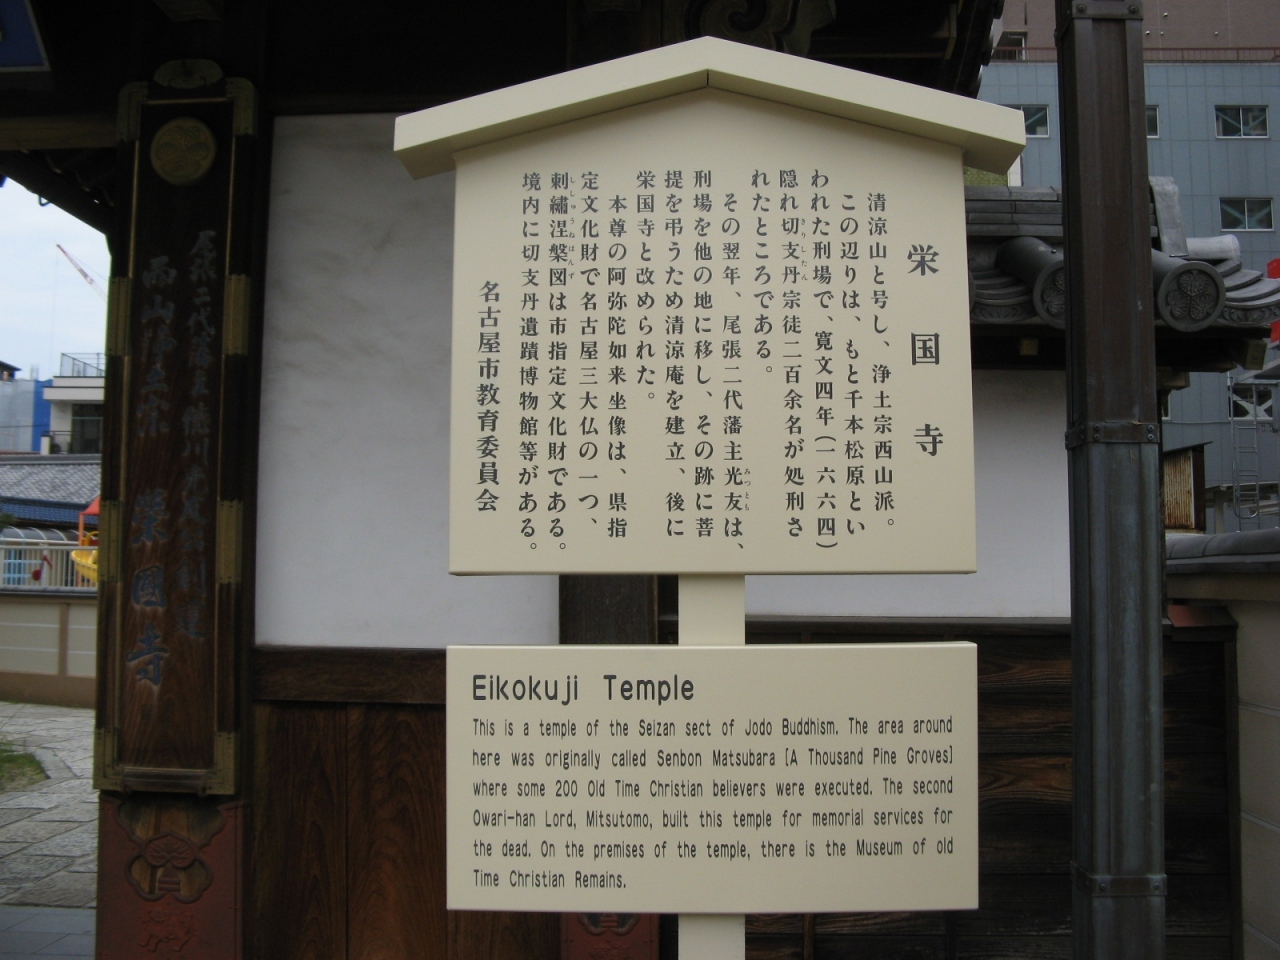 栄国寺
清涼山と号し、浄土宗西山派。
この辺りは、もと千本松原とい
われた刑場で、寛文四年(一六六四)
隠れ切支丹宗徒二百余名が処刑さ
きりしたん
れたところである。
その翌年、尾張二代藩主光友は、
みつとも
刑場を他の地に移し、その跡に菩
提を弔うため清涼庵を建立、後に
栄国寺と改められた。
本尊の阿弥陀如来坐像は、県指
定文化財で名古屋三大仏の一つ、
刺繍涅槃図は市指定文化財である。
ししゅうねはんず
境内に切支丹遺蹟博物館等がある。
名古屋市教育委員会
Eikokuji Temple
This is a temple of the Seizan sect of Jodo Buddhism. The area around
here was originally called Senbon Matsubara [A Thousand Pine Groves]
where some 200 Old Time Christian believers were executed. The second
Owari-han Lord, Mitsutomo, built this temple for memorial services for
the dead. On the premises of the temple, there is the Museum of old
Time Christian Remains.
尾張二代藩主徳川光友公創建
西山浄土宗 榮國寺